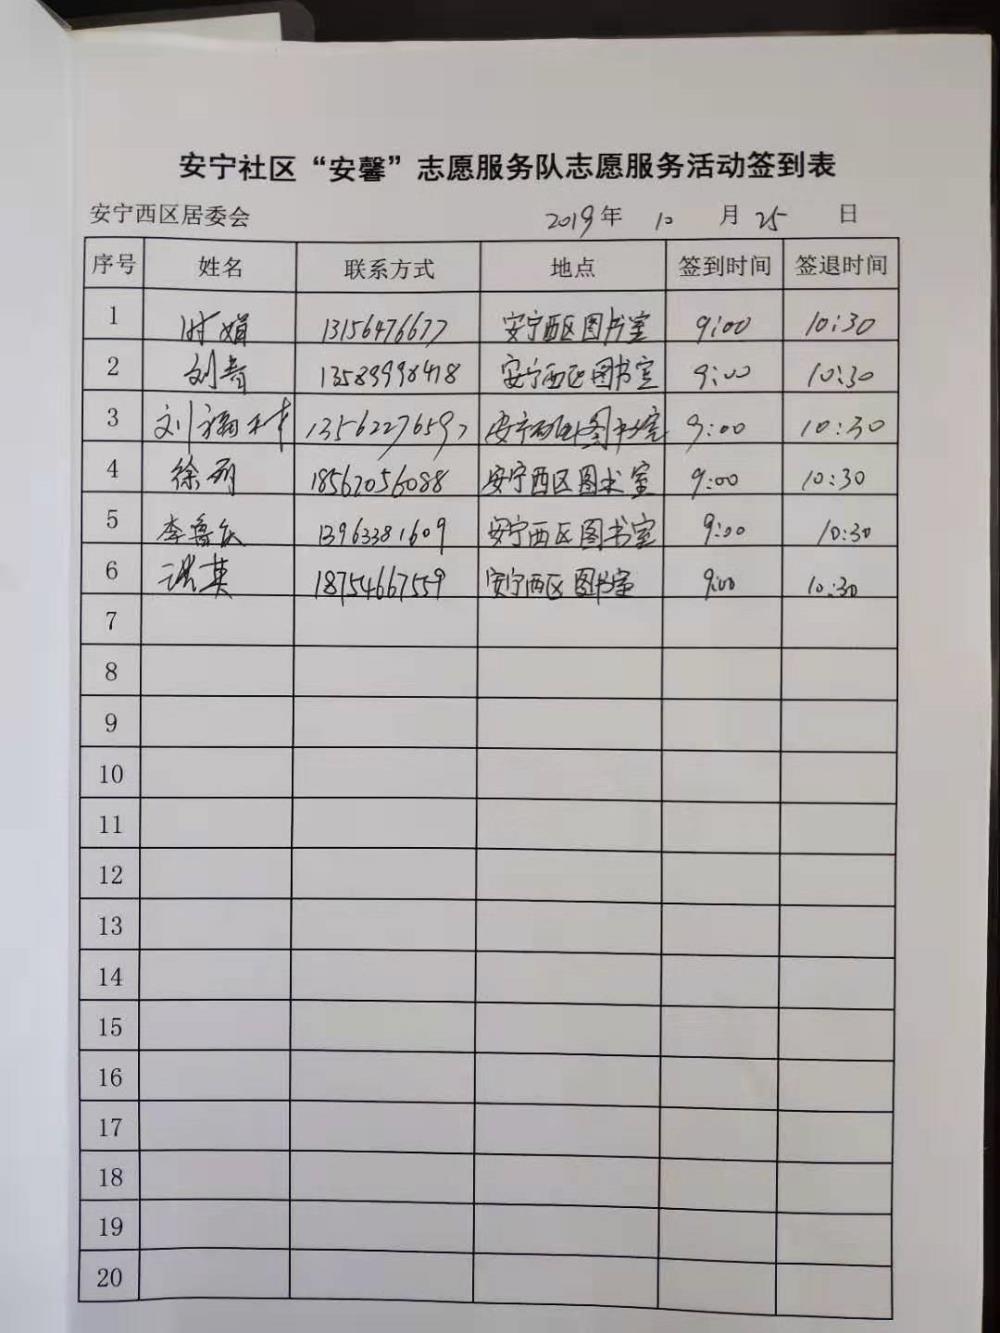 安宁社区“安馨”志愿服务队志愿服务活动签到表
安宁西区居委会 2019年 10 月 25 日
序号 姓名 联系方式 地点 签到时间 签退时间
1 时娟 13156476677 安宁西区图书室 9:00 10:30
2 刘春 安宁西区图书室 9:00 10:30
3 刘福林 安宁西区图书室 9:00 10:30
4 徐丽 18562056088 安宁西区图书室 9:00 10:30
5 李鲁 13963381609 安宁西区图书室 9:00 10:30
6 英 18754667559 安宁西区图书室 9:00 10:30
7
8
9
10
11
12
13
14
15
16
17
18
19
20